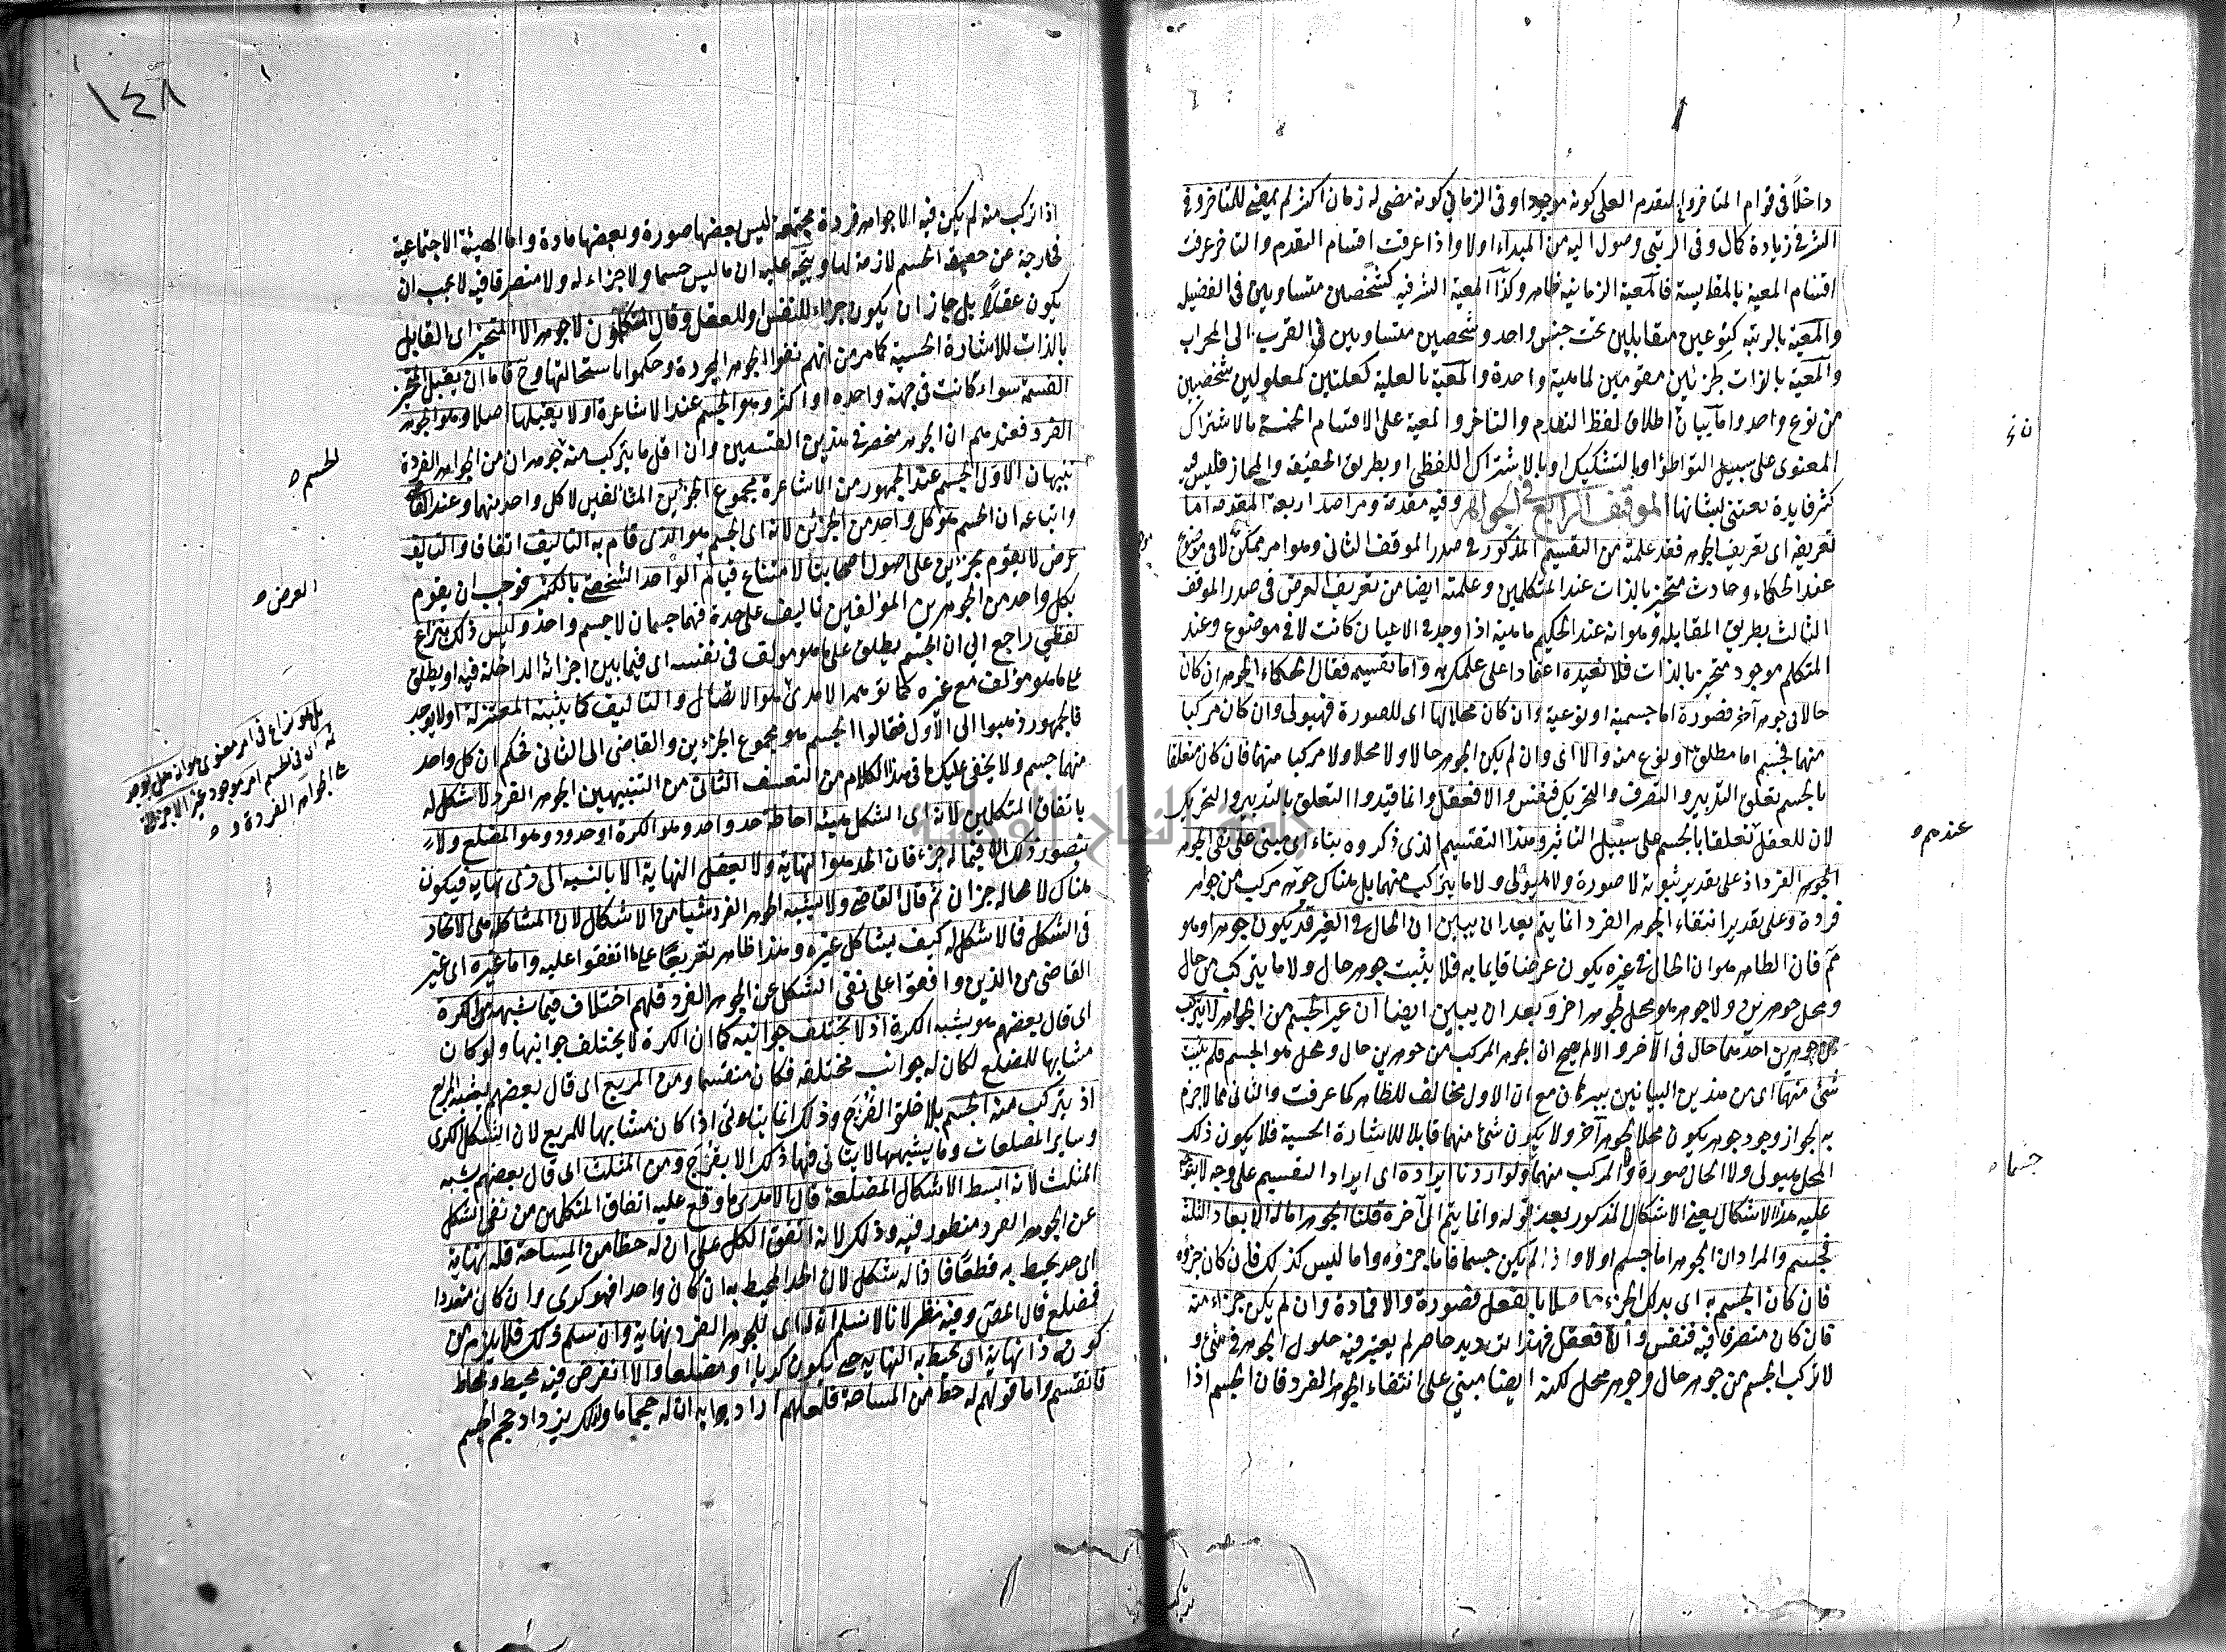 داخلاً فى قوام المتاخر وفى التقدم العلى كونه موجدا وفى الزمانى كونه مضى له زمان اكثر لم يمض للمتاخر وفى
الشرفى زيادة كمال وفى الرتبى وصول اليه من المبداء اولا واذا عرفت اقسام التقدم والتاخر عرفت
اقسام المعية بالمقايسة فالمعية الزمانية ظاهر وكذا المعية الشرفيه كشخصين متساويين فى الفضيل
والمعية بالرتبه كنوعين متقابلين تحت جنس واحد وشخصين متساويين فى القرب الى المحراب
والمعية بالذات كجزئين مقومين لماهية واحدة والمعية بالعلية كعلتين لمعلولين شخصيين
من نوع واحد واما بيان اطلاق لفظ التقدم والتاخر والمعية على الاقسام الخمسة بالاشتراك
المعنوى على سبيل التواطؤ او بالتشكيك او بالاشتراك اللفظى او بطريق الحقيقة والمجاز فليس فيه
كثر فايدة نعتنى لبيانها الموقف الرابع فى الجواهر وفيه مقدمة ومراصد اربعة المقدمه اما
تعريفه اى تعريف الجوهر فقد علمته من التقسيم المذكور فى صدر الموقف الثانى وهو امر ممكن لا فى موضوع
عند الحكماء وحادث متحيز بالذات عند المتكلمين وعلمته ايضا من تعريف العرض فى صدر الموقف
الثالث بطريق المقابلة وهو انه عند الحكيم ماهية اذا وجد فى الاعيان كانت لا فى موضوع وعند
المتكلم موجود متحيز بالذات فلا نعيده اعتمادا على علمك به واما تقسيمه فقال الحكماء الجوهر ان كان
حالا فى جوهر آخر فصورة اما جسمية او نوعية وان كان محلا لها اى للصورة فهيولى وان كان مركبا
منهما فجسم اما مطلق او نوع منه والا اى وان لم يكن الجوهر حالا ولا محلا ولا مركبا منهما فان كان متعلقا
بالجسم تعلق التدبير والتصرف والتحريك فنفس والا فعقل وانما قيدوا التعلق بالتدبير والتحريك
لان للعقل تعلقا بالجسم على سبيل التاثير وهذا التقسيم الذى ذكروه بناء اى مبنى على نفى الجوهر
الجوهر الفرد اذ على تقدير ثبوته لا صورة ولا هيولى ولا ما يتركب منهما بل هناك جوهر مركب من جواهر
فردة وعلى تقدير انتفاء الجوهر الفرد انما يتم بعد ان يبين ان الحال فى الغير قد يكون جوهرا وهو
مم فان الظاهر هو ان الحال فى غيره يكون عرضا قايما به فلا يثبت جوهر حال ولا ما يتركب من حال
ومحل جوهرين ولا جوهر هو محل لجوهر اخر وبعد ان يبين ايضا ان غير الجسم من الجواهر لا يتركب
من جوهرين احدهما حال فى الآخر والا لم يصح ان الجوهر المركب من جوهرين حال ومحل هو الجسم فلم يثبت
شئ منهما اى من هذين البيانين ببرهان مع ان الاول مخالف للظاهر كما عرفت والثانى مما لا جزم
به لجواز وجود جوهر يكون محلا لجوهر آخر ولا يكون شئ منهما قابلا للاشارة الحسية فلا يكون ذلك
المحل هيولى ولا الحال صورة ولا المركب منهما ولو اردنا ايراده اى ايراد التقسيم على وجه لا يتوجه
عليه هذا الاشكال يعنى الاشكال المذكور بعد قوله وانما يتم الى آخره قلنا الجوهر اما له الابعاد الثلثة
فجسم والمراد ان الجوهر اما جسم اولا واذا لم يكن جسما فاما جزؤه واما ليس كذلك فان كان جزؤه
فان كان الجسم به اى بذلك الجزء حاصلا بالفعل فصورة والا فمادة وان لم يكن جزاء منه
فان كان متصرفا فيه فنفس والا فعقل فهذا ترديد حاصر لم يعتبر فيه حلول الجوهر فى شئ و
لا تركب الجسم من جوهر حال وجوهر محل لكنه ايضا مبنى على انتفاء الجوهر الفرد فان الجسم اذا
عندهم
جسما
١٤٨
اذا تركب منه لم يكن فيه الا جواهر فردة مجتمعة ليس بعضها صورة وبعضها مادة واما الهيئة الاجتماعية
فخارجة عن حقيقة الجسم لازمة لها ويتجه عليه ان ما ليس جسما ولا جزاء له ولا متصرفا فيه لا يجب ان
يكون عقلاً بل جاز ان يكون جزاء للنفس او للعقل وقال المتكلمون لا جوهر الا المتحيز اى القابل
بالذات للاشارة الحسية كما مر من انهم نفوا الجوهر المجردة وحكموا باستحالتها وح فاما ان يقبل المتحيز
القسمة سواء كانت فى جهة واحده او اكثر وهو الجسم عند الاشاعرة او لا يقبلها اصلا وهو الجوهر
الفرد فعندهم ان الجوهر منحصر فى هذين القسمين وان اقل ما يتركب منه جوهران من الجواهر الفردة
تنبيهان الاول الجسم عند الجمهور من الاشاعرة مجموع الجزئين المتالفين لا كل واحد منهما وعند القاضى
واتباعه ان الجسم هو كل واحد من الجزئين لانه اى الجسم هو الذى قام به التاليف اتفاقا والتاليف
عرض لا يقوم بجزئين على اصول اصحابنا لامتناع قيام الواحد الشخصى بالكثير فوجب ان يقوم
بكل واحد من الجوهرين المؤلفين تاليف على حدة فهما جسمان لا جسم واحد وليس ذلك نزاع
لفظي راجع الى ان الجسم يطلق على ما هو مؤلف فى نفسه اى فيما بين اجزائه الداخلة فيه او يطلق
على ما هو مؤلف مع غيره كما توهمه الامدى هو الاتصال والتاليف كما يثبته المعتزلة او لا يوجد
فالجمهور ذهبوا الى الاول فقالوا الجسم هو مجموع الجزءين والقاضى الى الثانى فحكم ان كل واحد
منهما جسم ولا يخفى عليك ما فى هذا الكلام من التعسف الثانى من التنبيهين الجوهر الفرد لا شكل له
باتفاق المتكلمين لانه اى الشكل هيئة احاطة حد واحد وهو الكرة او حدود وهو المضلع ولا
يتصور ذلك الا فيما له جزء فان الحد هو النهاية ولا يعقل النهاية الا بالنسبه الى ذى نهاية فيكون
هناك لا محاله جزان ثم قال القاضى ولا يشبه الجوهر الفرد شيا من الاشكال لان المشاكلة هى الاتحاد
فى الشكل فما لا شكل له كيف يشاكل غيره وهذا ظاهر تفريعا على ما اتفقوا عليه واما غيره اى غير
القاضى من الذين وافقوا على نفى الشكل عن الجوهر الفرد فلهم اختلاف فيما يشبهه من الكرة
اى قال بعضهم هو يشبه الكرة اذ لا يختلف جوانبه كما ان الكرة لا يختلف جوانبها ولو كان
مشابها للمضلع لكان له جوانب مختلفه فكان منقسما ومن المربع اى قال بعضهم يشبه المربع
اذ يتركب منه الجسم بلا خلو الفرج وذلك انما يتاتى اذا كان مشابها للمربع لان الشكل الكرى
وساير المضلعات وما يشبهها لا يتاتى فيها ذلك الا بفرج ومن المثلث اى قال بعضهم يشبه
المثلث لانه ابسط الاشكال المضلعة قال الامدى ما وقع عليه اتفاق المتكلمين من نفى الشكل
عن الجوهر الفرد منظور فيه وذلك لانه اتفق الكل على ان له حظا من المساحة فله نهاية
اى حد يحيط به قطعا فاذا له شكل لان الحد المحيط به ان كان واحدا فهو كروى وان كان متعددا
فمضلع قال المص وفيه نظر لانا لا نسلم انه اى للجوهر الفرد نهاية وان سلم ذلك فلا يلزم من
كونه ذا نهاية ان يحيط به النهاية حتى يكون كريا او مضلعا والا انفرض فيه محيط ومحاط
فانقسم واما قولهم له حظ من المساحة فلعلهم ارادوا به ان له حجما ما ولذلك يزداد حجم الجسم
الجسم
العرض
بل هو نزاع فى امر معنوى هو انه هل يوجد
ثمه اى فى الجسم امر موجود غير الاجزاء
الجواهر الفردة